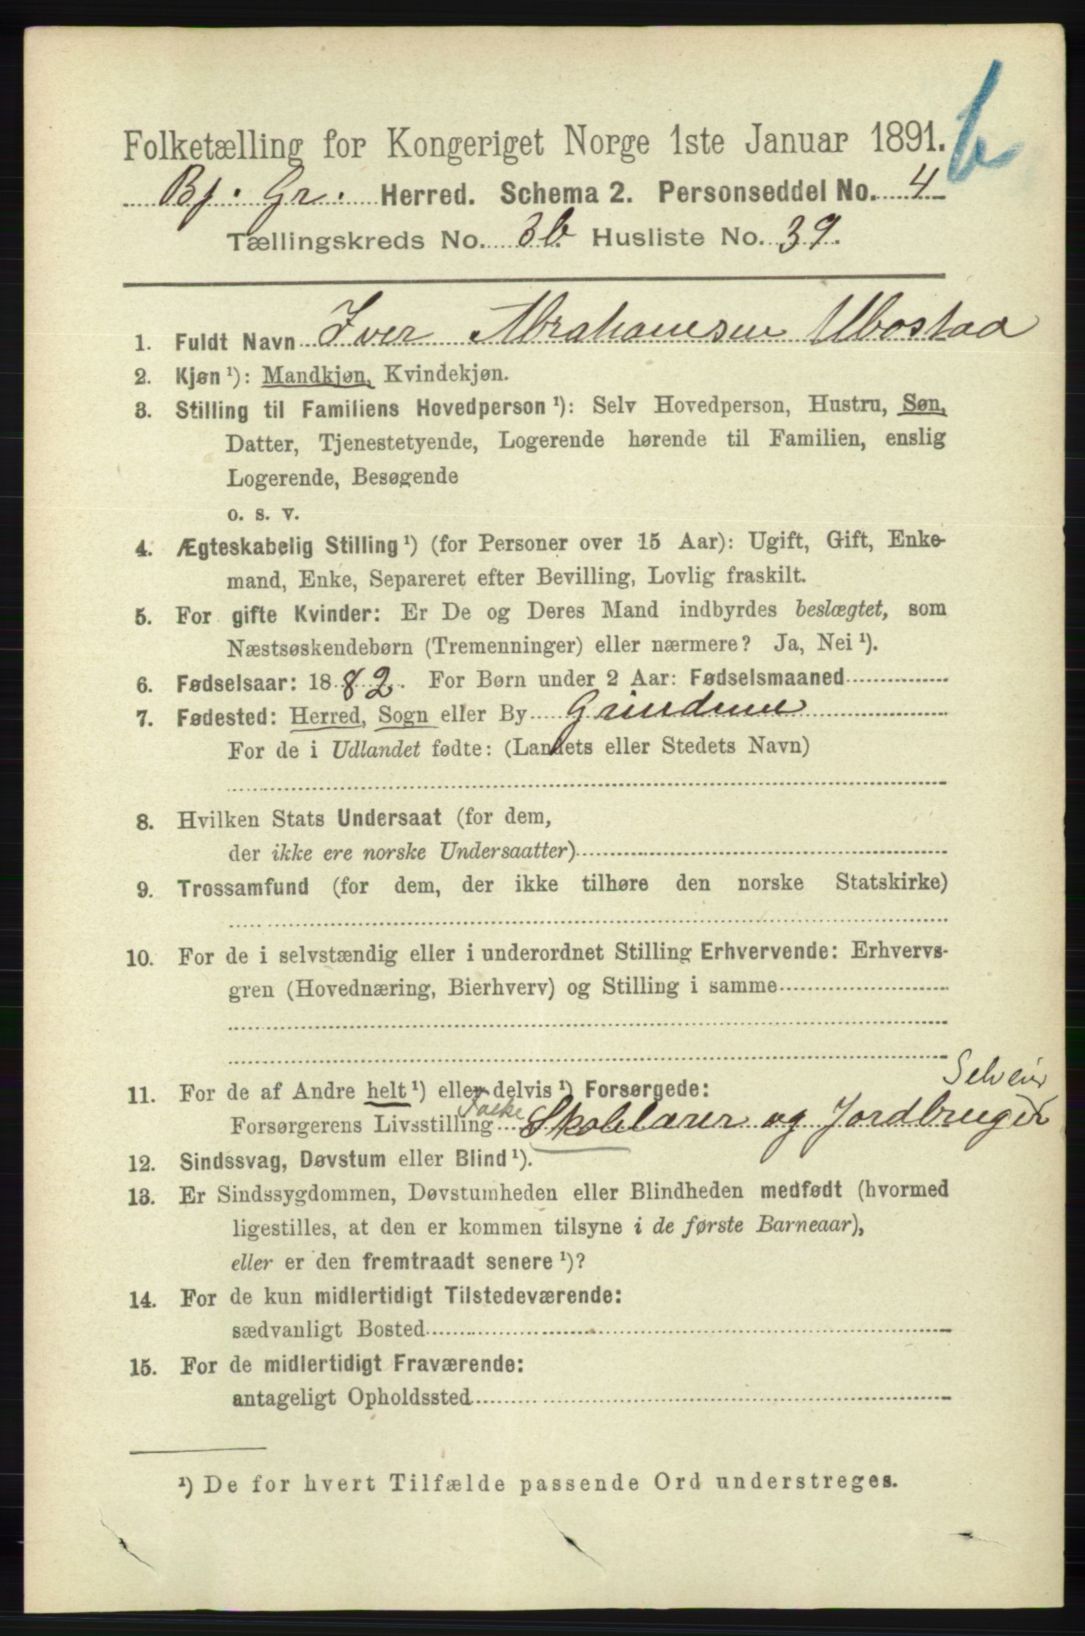 b
Folketælling for Kongeriget Norge 1ste Januar 1891.
Bj. Gr. Herred. Schema 2. Personseddel No. 4
Tællingskreds No. 3b Husliste No. 39.
1. Fuldt Navn Iver Abrahamsen Ubostad
2. Kjøn ¹): Mandkjøn, Kvindekjøn.
3. Stilling til Familiens Hovedperson ¹): Selv Hovedperson, Hustru, Søn,
Datter, Tjenestetyende, Logerende hørende til Familien, enslig
Logerende, Besøgende
o. s. v.
4. Ægteskabelig Stilling ¹) (for Personer over 15 Aar): Ugift, Gift, Enke-
mand, Enke, Separeret efter Bevilling, Lovlig fraskilt.
5. For gifte Kvinder: Er De og Deres Mand indbyrdes beslægtet, som
Næstsøskendebørn (Tremenninger) eller nærmere? Ja, Nei ¹).
6. Fødselsaar: 1882. For Børn under 2 Aar: Fødselsmaaned
7. Fødested: Herred, Sogn eller By Grindum
For de i Udlandet fødte: (Landets eller Stedets Navn)
8. Hvilken Stats Undersaat (for dem,
der ikke ere norske Undersaatter)
9. Trossamfund (for dem, der ikke tilhøre den norske Statskirke)
10. For de i selvstændig eller i underordnet Stilling Erhvervende: Erhvervs-
gren (Hovednæring, Bierhverv) og Stilling i samme
11. For de af Andre helt ¹) eller delvis ¹) Forsørgede: Selveier
Forsørgerens Livsstilling Folke Skolelærer og Jordbruger
12. Sindssvag, Døvstum eller Blind ¹).
13. Er Sindssygdommen, Døvstumheden eller Blindheden medfødt (hvormed
ligestilles, at den er kommen tilsyne i de første Barneaar),
eller er den fremtraadt senere ¹)?
14. For de kun midlertidigt Tilstedeværende:
sædvanligt Bosted
15. For de midlertidigt Fraværende:
antageligt Opholdssted
¹) De for hvert Tilfælde passende Ord understreges.